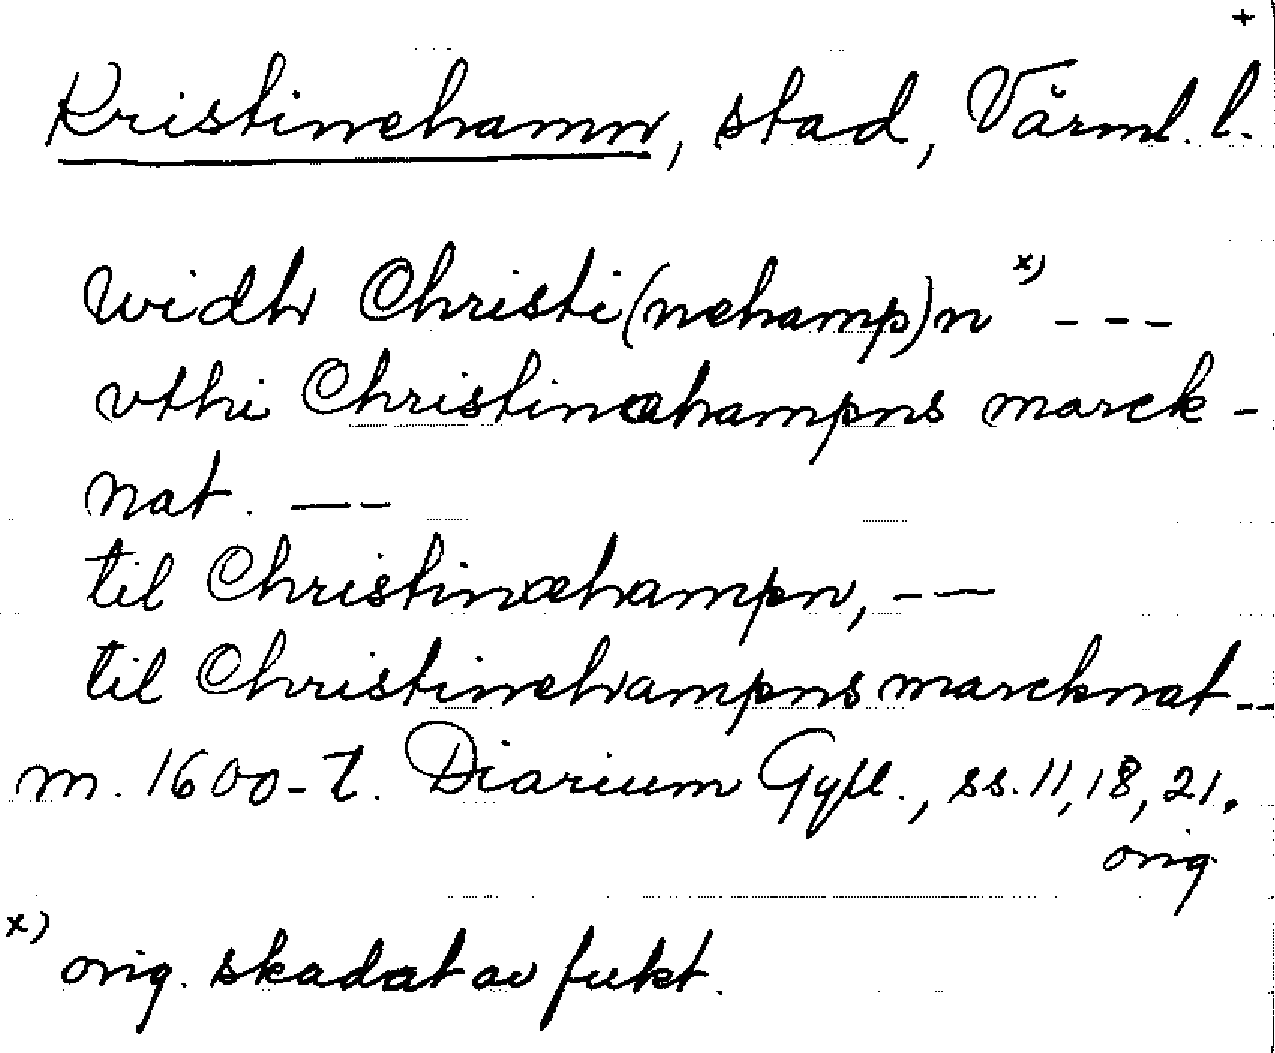 +
Kristinehamn, stad, Värml. l.
widh Christi(nehamp)n x) - - -
vthi Christinæhampns marck-
nat. - -
til Christinæhampn, - -
til Christinehampns marcknat - -
m. 1600-t. Diarium Gyll., ss. 11, 18, 21.
orig
x) orig. skadat av fukt.